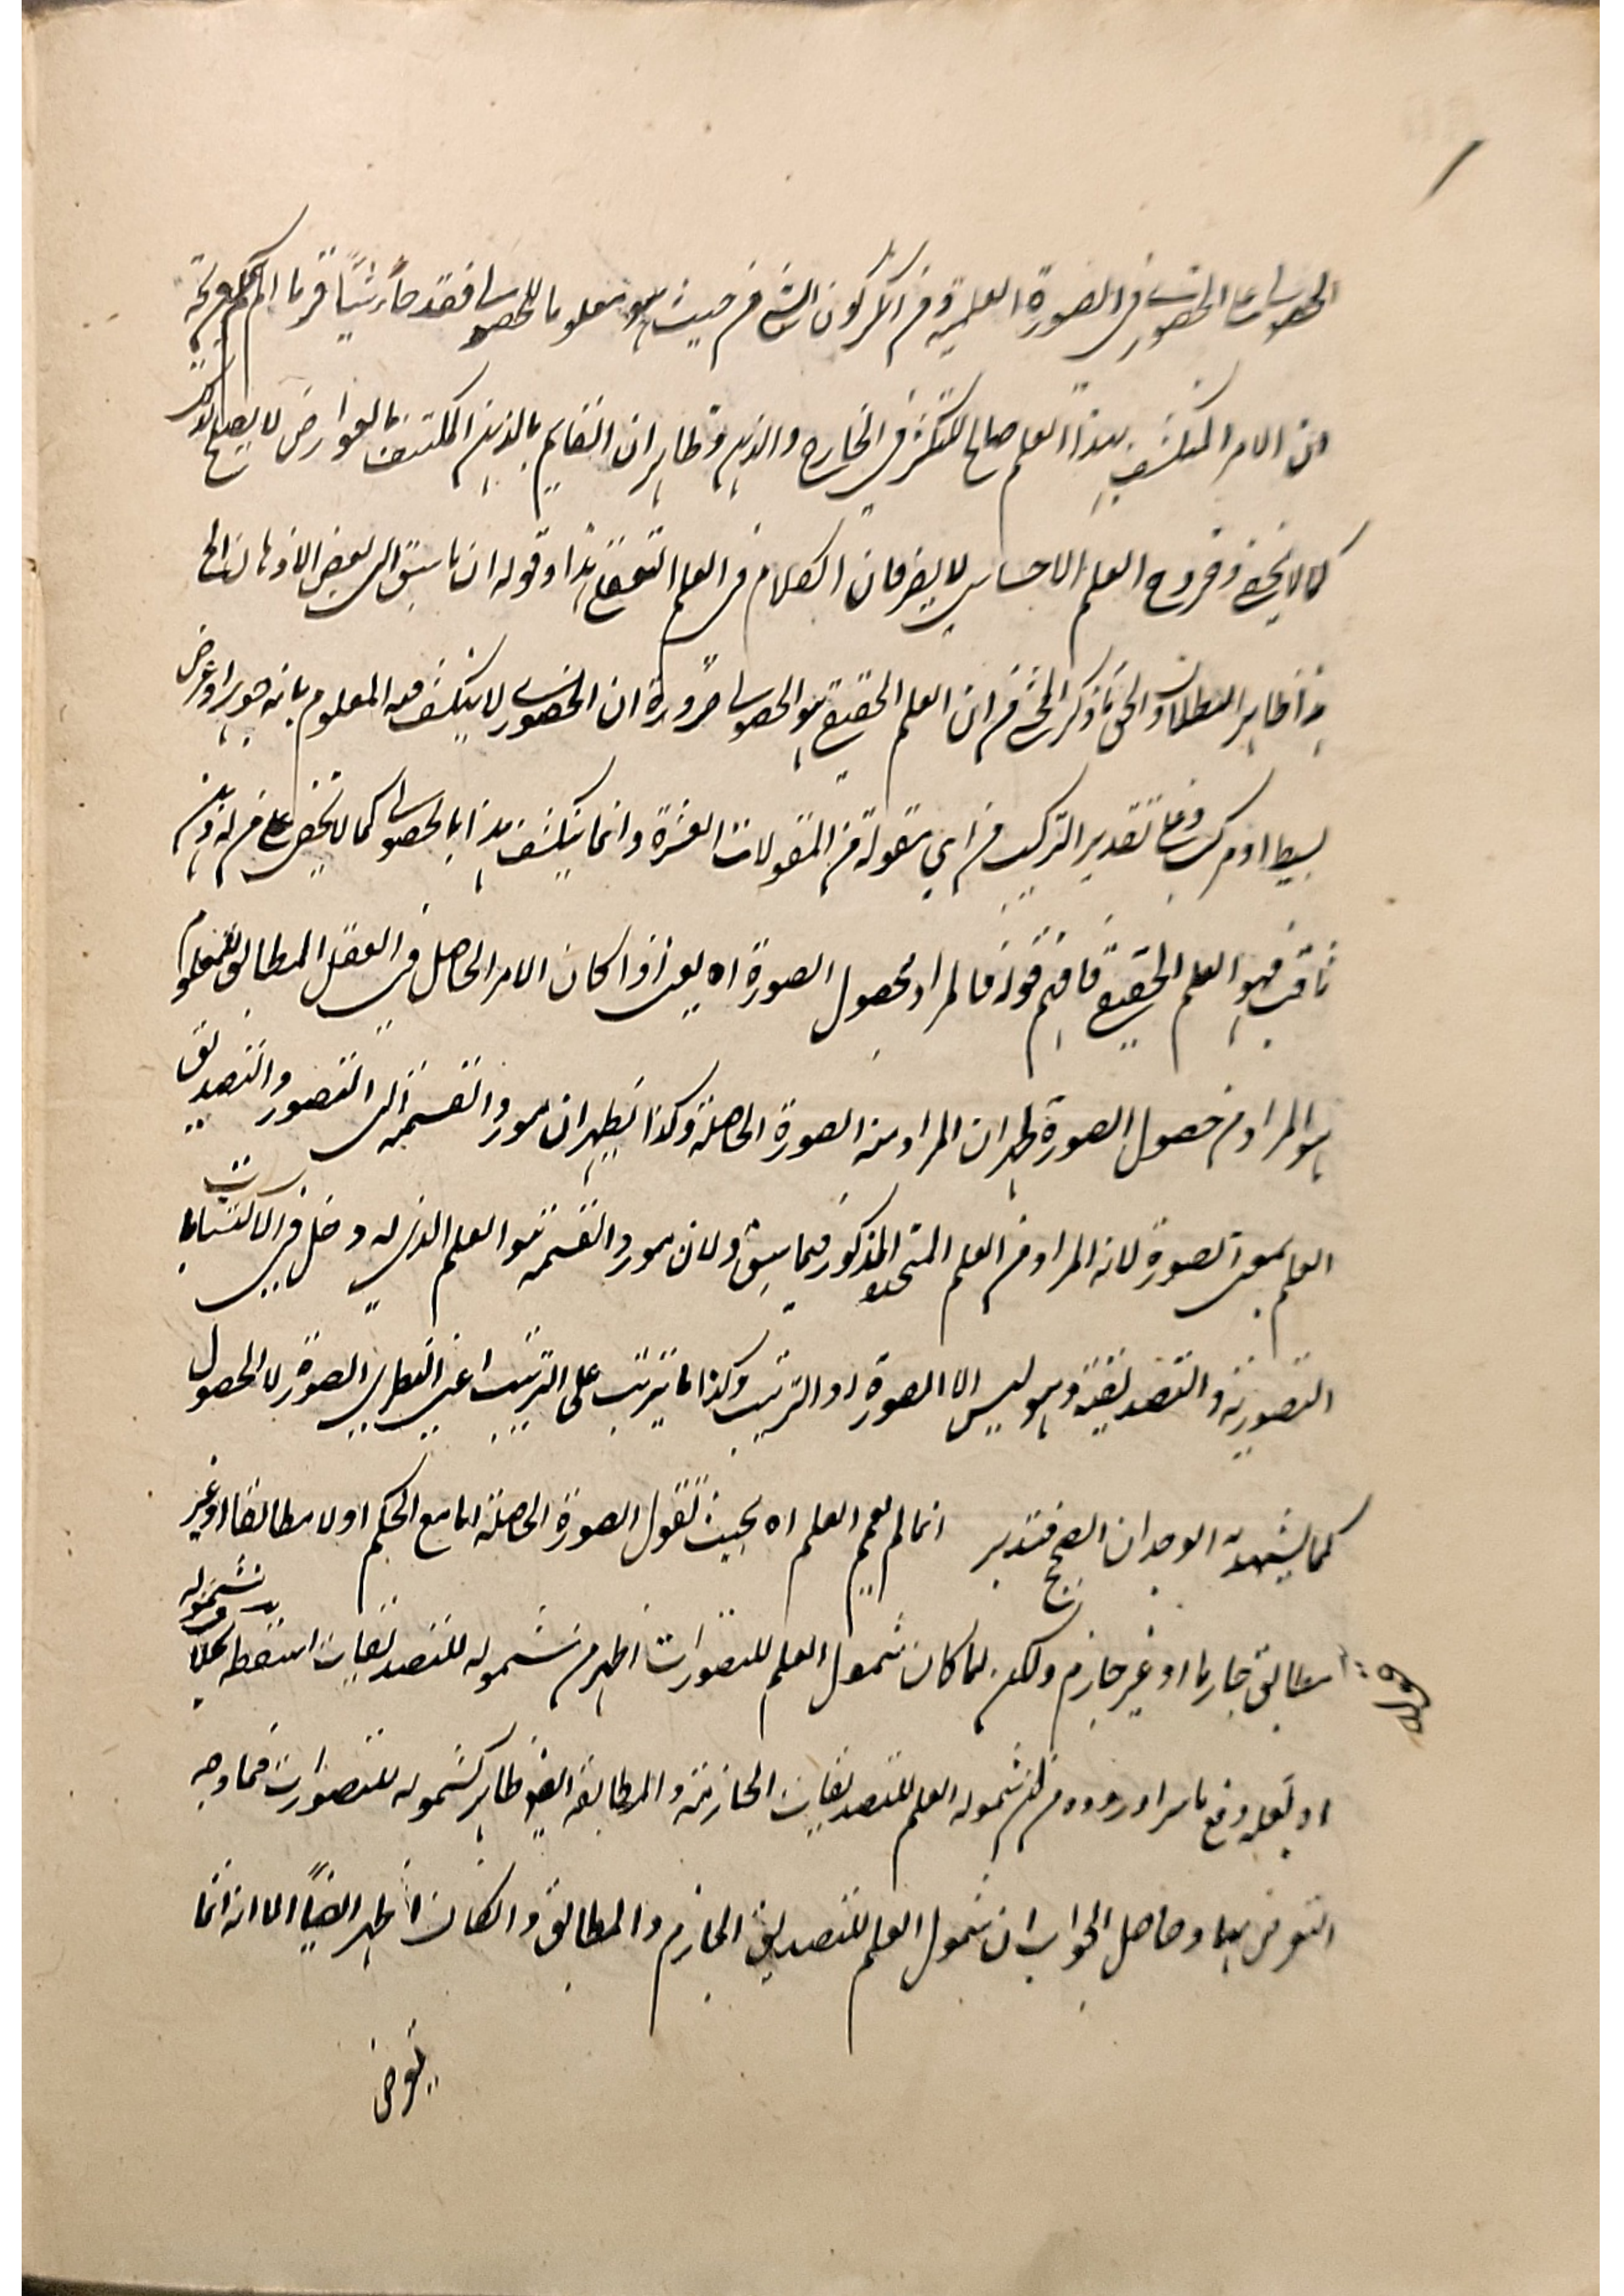 الحصولي على الحضوري في الصورة العلمية ومن انكر كون الشئ من حيث هو معلوما للحصولي فقد جاء شيئا فريا الم يعلم
ان الامر المنكشف بهذا العلم صالح للتكثر في الخارج والذهن وظاهر ان القايم بالذهن المكتنف بالعوارض لا يصلح لذلك
كما لا يخفى وخروج العلم الاحساسي لا يضر فان الكلام في العلم التعقلي هذا وقوله ان ما سبق الى بعض الاذهان الخ
هذا ظاهر البطلان والحق ما ذكر المحشي من ان العلم الحقيقي هو الحصولي ضرورة ان الحضوري لا ينكشف معه المعلوم بانه جوهر او عرض
بسيط او مركب وعلى تقدير التركيب من اي مقولة من المقولات العشرة وانما ينكشف هذا بالحصولي كما لا يخفى على من له ذهن
ثاقب فهو العلم الحقيقي فافهم قوله فالمراد بحصول الصورة اه يعني اذا كان الامر الحاصل في العقل المطابق للمعلوم
هو المراد من حصول الصورة ظهر ان المراد منه الصورة الحاصلة وكذا يظهر ان مورد القسمة الى التصور والتصديق
العلم بمعنى الصورة لانه المراد من العلم المتجدد المذكور فيما سبق ولان مورد القسمة هو العلم الذي له دخل في الاكتسابات
التصورية والتصديقية وهو ليس الا الصورة اذ الترتيب وكذا ما يترتب على الترتيب اعني النظري الصورة لا الحصول
كما يشهد به الوجدان الصحيح فتدبر انما لم يعمم العلم اه بحيث تقول الصورة الحاصلة اما مع الحكم او لا مطابقا او غير
مطابق جازما او غير جازم ولكن لما كان شمول العلم للتصورات اظهر من شموله للتصديقات اسقطه بخلاف شموله
قوله
او لعله دفع ما يرد وروده من ان شموله العلم للتصديقات الجازمة والمطابقة ايضا ظاهر كشموله للتصورات فما وجه
التعرض بها وحاصل الجواب ان شمول العلم للتصديق الجازم والمطابق وان كان اظهر ايضا الا انه انما
يعرض